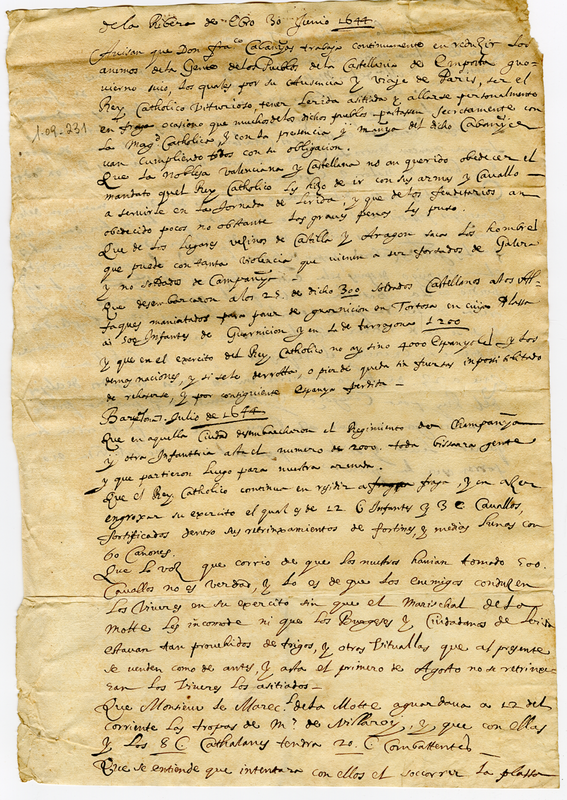 de la Ribera de Ebro 30 Junio 1644
Avisan que Don fran.co Cabanyas trabaja continuamente en reduzir los
animos de la Gente de los Pueblos de la Castellania de Emposta gou-
vierno suio, los quales por su Ausencia y viaje de Paris, ser el
Rey Catholico Vitturioso tener Lerida asitiada y allarse personalmente
en fraga ocasiono que muchos de los dichos pueblos secretamente con
1.09-231
la Mag.d Catholica, y con la presencia, y manya del dicho Cabanyas
van cumpliendo todos con su obligacion.
Que la Noblesa Valenciana y Castellana no an querido obedecer el
mandato quel Rey Catholico les hizo de ir con sus armas y Cavallo
a servirle en la Jornada de Lirida, y que de los feuditarios an
obedecido pocos no obstante los graves penas les puso.
Que de los Lugares vezinos de Castilla y Aragon saca los hombres
que puede con tanta violencia que vienen a ser forsados de Galera
y no soldados de Campanya
Que desembarcaron a los 25 de dicho 300 soldados Castellanos a los Al-
faques maniatados para de guarnicion en Tortosa en cuya Plassa
ai 500 Infantes de Guarnicion y en la de tarragona 1200
Y que en el exercito del Rey Catholico no ay sino 4000 Espanyoles y los
demas naciones, y si se le derrotta, o pierde queda sin fuersas impossibilitado
de rehaserse, y por consiguiente Espanya perdida
Julio de 1644
Que en aquella Ciudad desembarcaron el Regimiento de Champanya
y otra Infantteria asta el numero de 2000. toda bissarra gente
y que partieron luego para nuestra armada.
Que el Rey Catholico continua en residir a fraga, y en azer
engrossar su exercito el qual es de 12 C Infantes y 3 C Cavallos,
fortificados dentro sus retrinxamientos de fortines, y medias lunas con
60 Canones.
Que la voz que corrio de que los nuestros havian tomado 500.
Cavallos no es verdad, y lo es de que los enemigos conduzen
los viveres en su exercito sin que el Marischal de la
Motte les incomode ni que los Burgeses y Ciudadanos de Lerida
estavan tan prouehidos de trigos, y otras Vituallas que al presente
se venden como de antes, y asta el primero de Agosto no se
los Viveres los asitiados
Que Monsieur le Marec.l de la Motte aguardava a 12 del
corriente las tropas de M.r de Villaroy, y que con ellas
y los 8 C Cathalanes tendra 20. C Combattentes
Que se entiende que intentara con ellos el socorrer la plassa